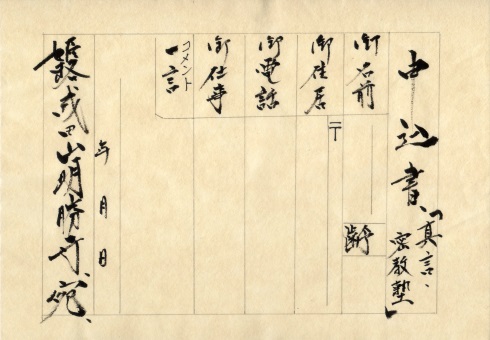 申込書「真言、
密教塾」
御名前
齢
御住居
〒
御電話
御仕事
一言
コメント
年 月 日
成田山明勝寺、宛、